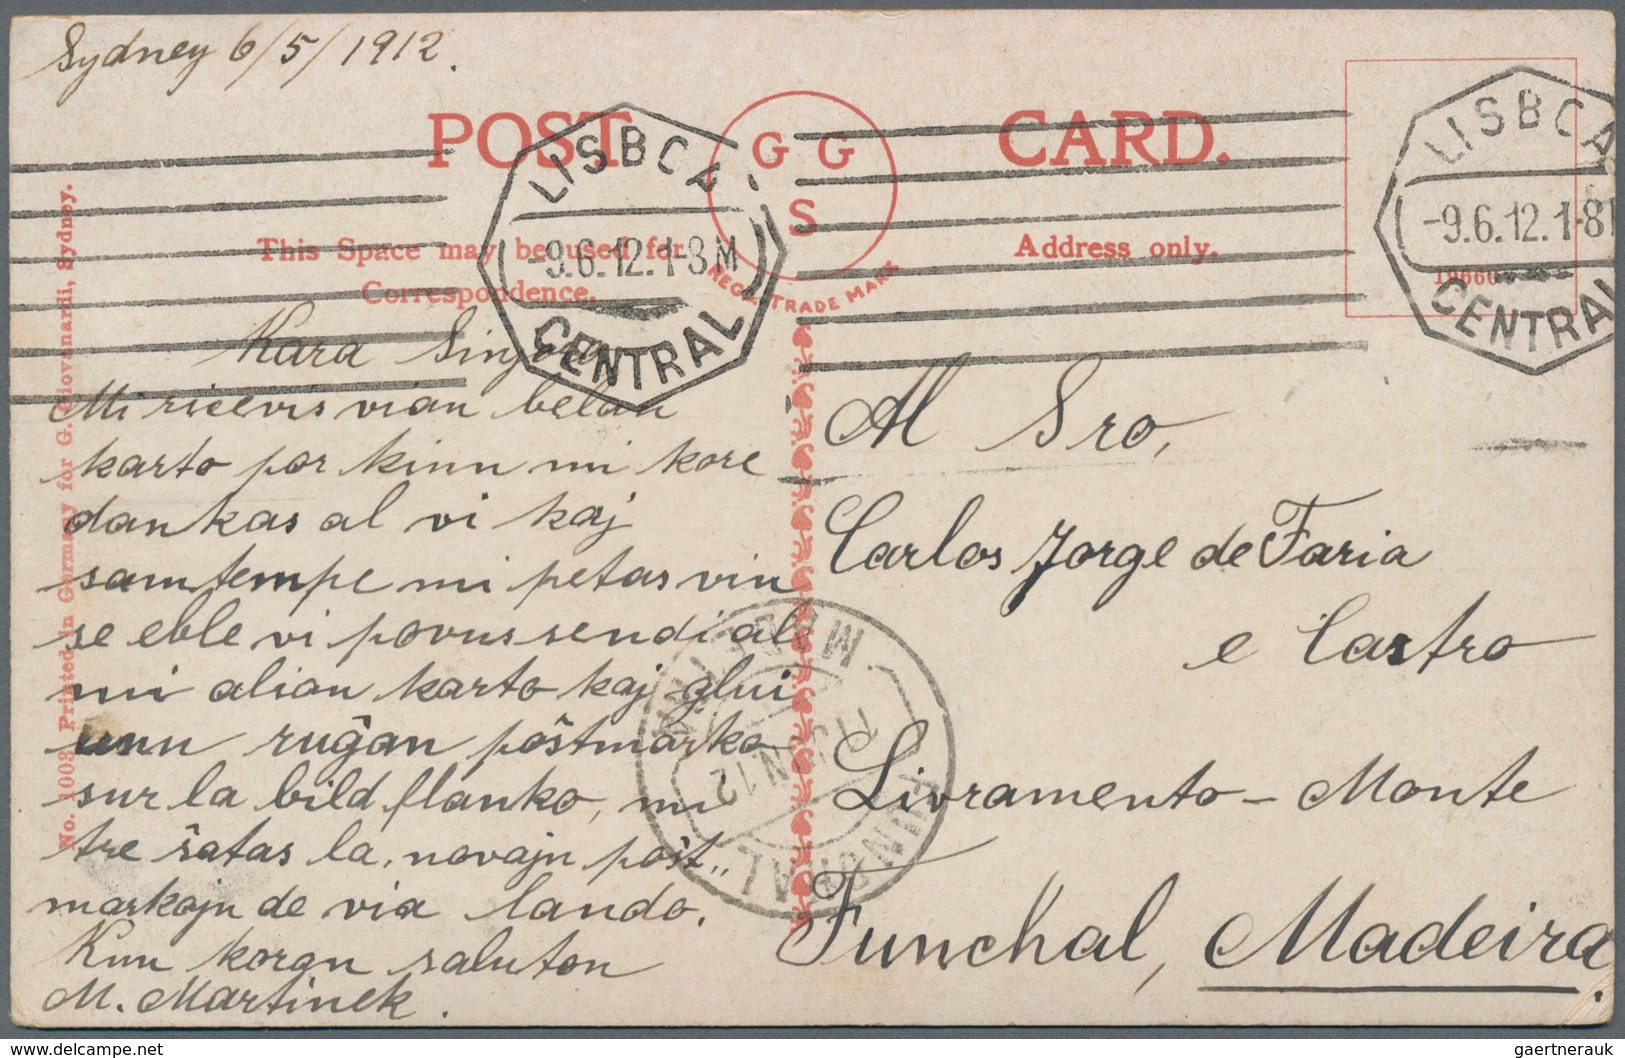 Sydney 6/5/1912.
POST CARD.
G G
S
REGD. TRADE MARK
This Space may be used for
Correspondence.
Address only.
LISBOA
-9.6.12.1-8M
CENTRAL
LISBOA
-9.6.12.1-8
CENTRAL
No. 1003 Printed in Germany for G. Giovanardi, Sydney.
Kara Sinjoro
Mi ricevis vian belan
karto por kiun mi kore
dankas al vi kaj
samtempe mi petas vin
se eble vi povus sendi al
mi alian karto kaj glui
unu ruĝan poŝtmarko
sur la bildflanko, mi
tre ŝatas la novajn poŝt„
markojn de via lando.
Kun koran saluton
M. Martinek.
Al Sro,
Carlos Jorge de Faria
e Castro
Livramento - Monte
Funchal, Madeira.
FUNCHAL
gaertnerauk